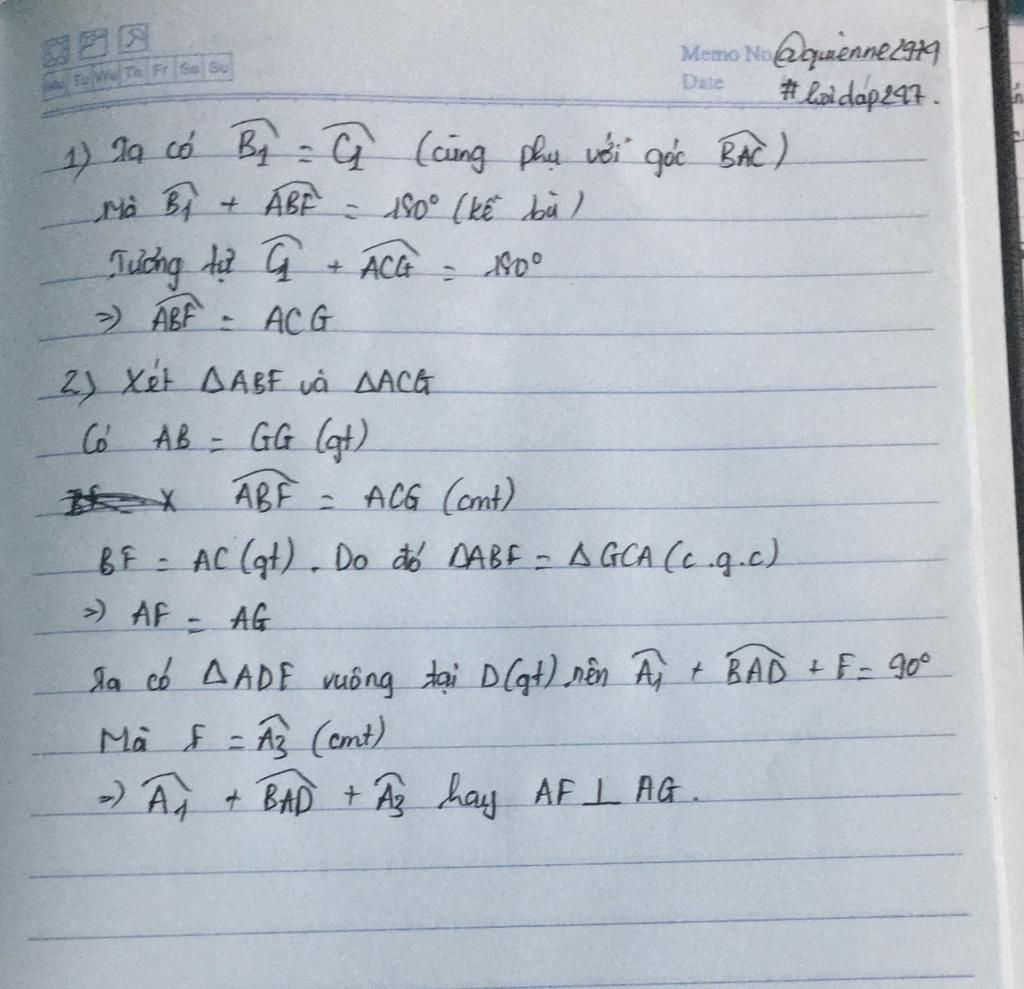 Mo Tu We Th Fr Sa Su
Memo No @quienne2979
Date #hoidap247.
1) Ta có B̂1 = Ĉ1 (cùng phụ với góc BAC)
Mà B̂1 + ABF = 180° (kề bù)
Tương tự Ĉ1 + ACG = 180°
=> ABF = ACG
2) Xét ΔABF và ΔACG
Có AB = GG (gt)
ABF = ACG (cmt)
BF = AC (gt). Do đó ΔABF = ΔGCA (c.g.c)
=> AF = AG
Ta có ΔADF vuông tại D (gt) nên Â1 + BAD + F = 90°
Mà F = Â3 (cmt)
=> Â1 + BAD + Â3 hay AF ⊥ AG.